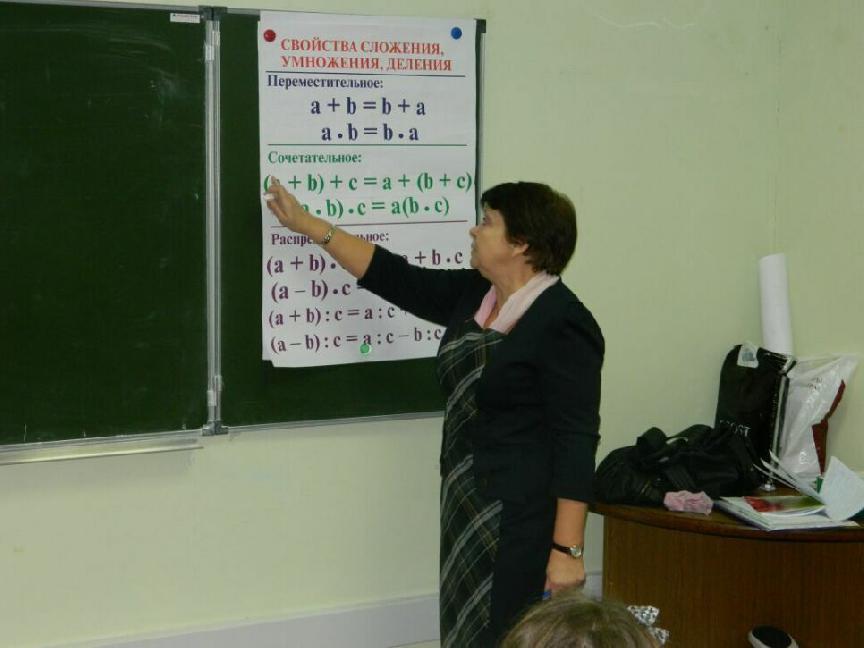 СВОЙСТВА СЛОЖЕНИЯ,
УМНОЖЕНИЯ, ДЕЛЕНИЯ
Переместительное:
a + b = b + a
a • b = b • a
Сочетательное:
+ b) + c = a + (b + c)
b) • c = a(b • c)
(a + b) • + b • c
(a – b) • c =
(a + b) : c = a : c
(a – b) : c = a : c – b : c